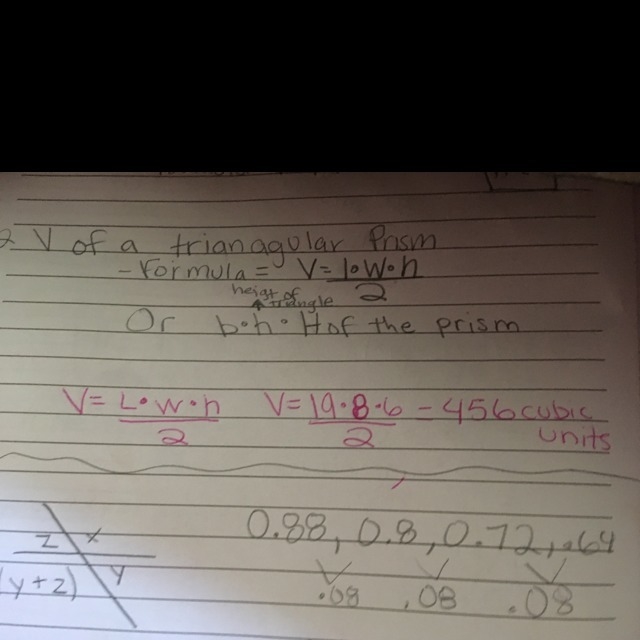 2. V of a trianagular Prism
- Formula = V = l•w•h
2
heigt of
triangle
Or b•h•H of the prism
V = L•W•h V = 19•8•6 = 456 cubic
2 2 units
z x
(y+z) y
0.88, 0.8, 0.72, .64
.08 .08 .08